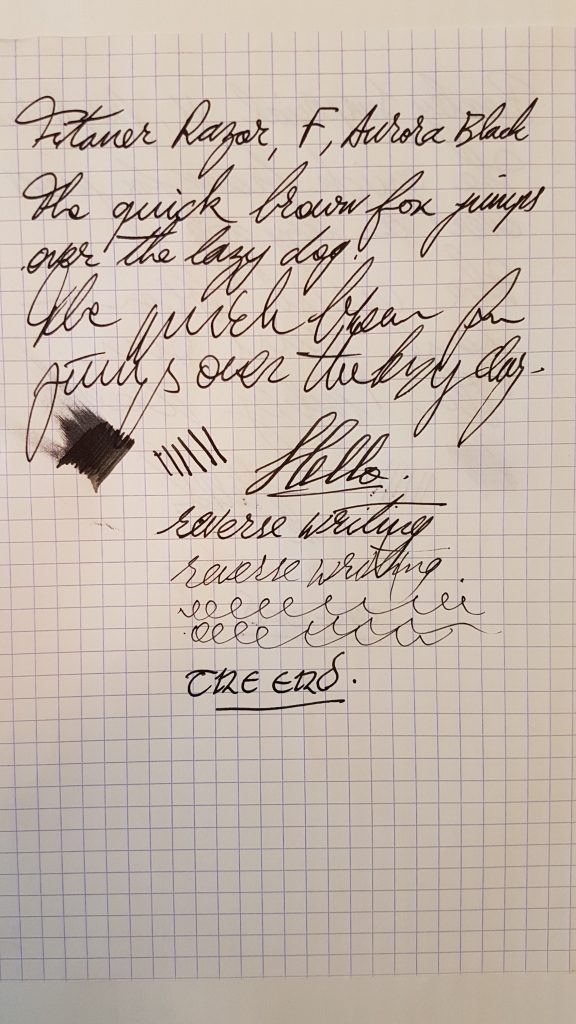 Fitaner Razor, F, Aurora Black
The quick brown fox jumps
over the lazy dog.
The quick brown fox
jumps over the lazy dog.
Hello.
reverse writing
reverse writing.
THE END.